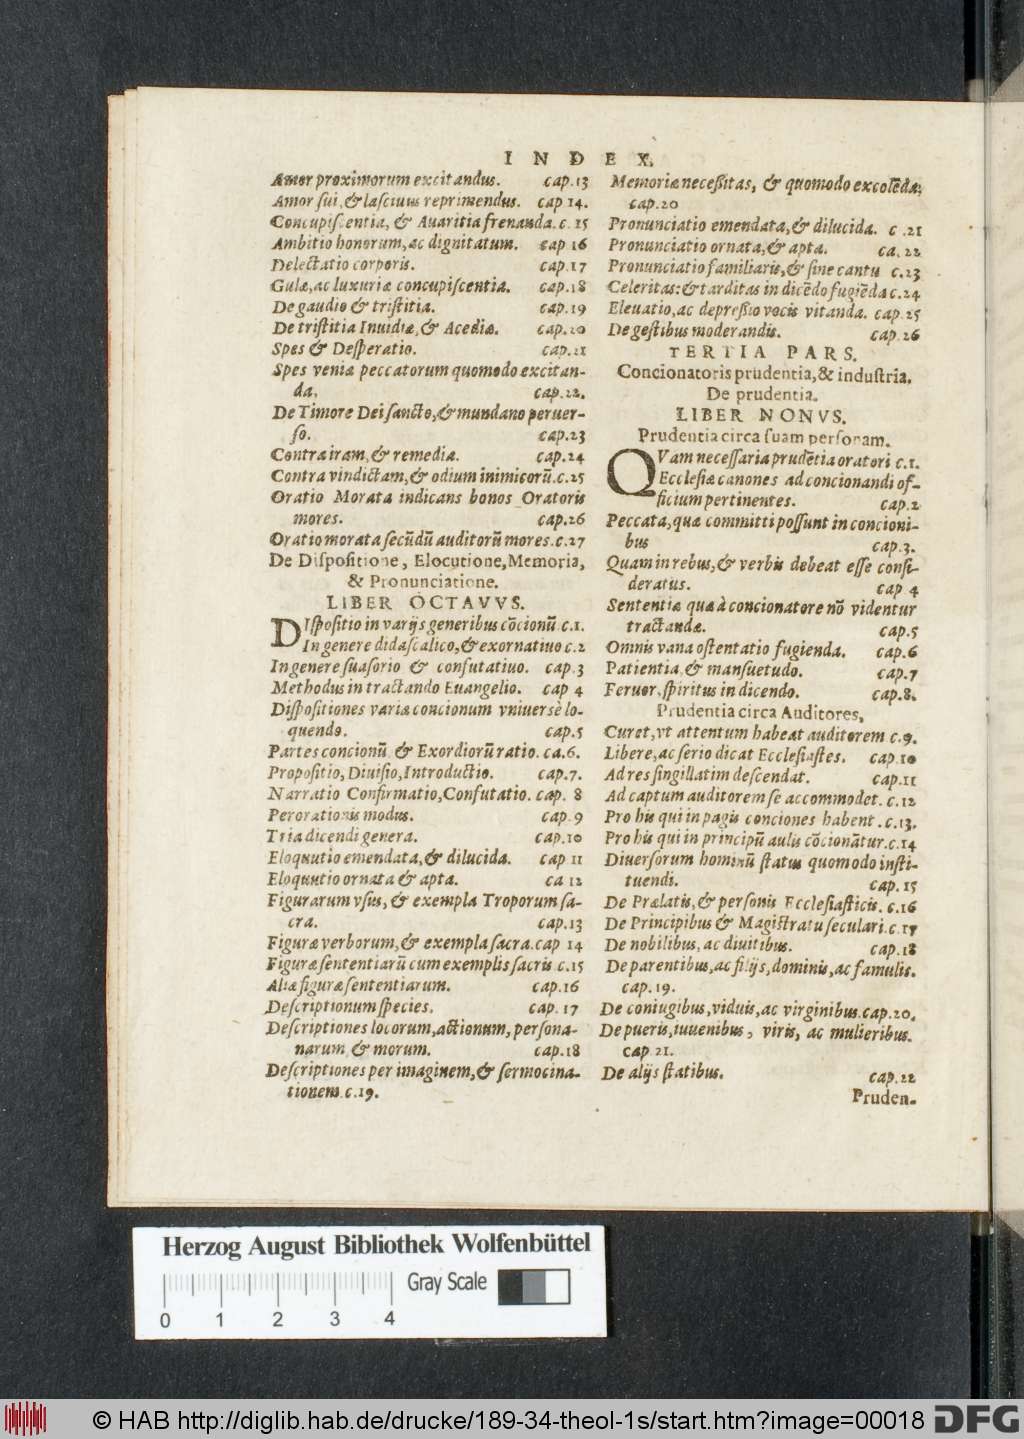 INDEX.
Amor proximorum excitandus. cap.13
Amor sui, & lascivus reprimendus. cap 14.
Concupiscentia, & Auaritia frenanda. c. 15
Ambitio honorum, ac dignitatum. cap 16
Delectatio corporis. cap.17
Gulæ, ac luxuriæ concupiscentia. cap.18
De gaudio & tristitia. cap.19
De tristitia Inuidiæ, & Acediæ. cap.20
Spes & Desperatio. cap.21
Spes veniæ peccatorum quomodo excitan-
da. cap.22.
De Timore Dei sancto, & mundano peruer-
so. cap.23
Contra iram, & remedia. cap.24
Contra vindictam, & odium inimicorũ.c.25
Oratio Morata indicans bonos Oratoris
mores. cap.26
Oratio morata secũdũ auditorũ mores.c.27
De Dispositione, Elocutione, Memoria,
& Pronunciatione.
LIBER OCTAVVS.
DIspositio in varijs generibus cõcionũ c.1.
In genere didascalico, & exornatiuo c.2
In genere suasorio & confutatiuo. cap.3
Methodus in tractando Euangelio. cap 4
Dispositiones variæ concionum vniuersè lo-
quendo. cap.5
Partes concionũ & Exordiorũ ratio. ca.6.
Propositio, Diuisio, Introductio. cap.7.
Narratio Confirmatio, Confutatio. cap. 8
Perorationis modus. cap.9
Tria dicendi genera. cap.10
Eloquutio emendata, & dilucida. cap 11
Eloquutio ornata & apta. ca 12
Figurarum vsus, & exempla Troporum sa-
cra. cap.13
Figuræ verborum, & exempla sacra.cap 14
Figuræ sententiarũ cum exemplis sacris c.15
Aliæ figuræ sententiarum. cap.16
Descriptionum species. cap. 17
Descriptiones locorum, actionum, persona-
narum & morum. cap.18
Descriptiones per imaginem, & sermocina-
tionem c.19.
Memoriæ necessitas, & quomodo excolẽda,
cap.20
Pronunciatio emendata, & dilucida. c .21
Pronunciatio ornata, & apta. ca. 22
Pronunciatio familiaris, & sine cantu c.23
Celeritas: & tarditas in dicẽdo fugiẽda c.24
Eleuatio, ac depressio vocis vitanda. cap.25
De gestibus moderandis. cap.26
TERTIA PARS.
Concionatoris prudentia, & industria.
De prudentia.
LIBER NONVS.
Prudentia circa suam personam.
QVam necessaria prudẽtia oratori c.1.
Ecclesiæ canones ad concionandi of-
ficium pertinentes. cap.2
Peccata, quæ committi possunt in concioni-
bus cap.3.
Quam in rebus, & verbis debeat esse consi-
deratus. cap 4
Sententiæ quæ à concionatore nõ videntur
tractandæ. cap.5
Omnis vana ostentatio fugienda. cap.6
Patientia & mansuetudo. cap.7
Feruor, spiritus in dicendo. cap.8.
Prudentia circa Auditores,
Curet, vt attentum habeat auditorem c.9.
Libere, ac serio dicat Ecclesiastes. cap.10
Ad res singillatim descendat. cap.11
Ad captum auditorem se accommodet. c.12
Pro his qui in pagis conciones habent .c.13.
Pro his qui in principũ aulis cõcionãtur.c.14
Diuersorum hominũ status quomodo insti-
tuendi. cap. 15
De Prælatis, & personis Ecclesiasticis. c.16
De Principibus & Magistratu seculari.c.17
De nobilibus, ac diuitibus. cap.18
De parentibus, ac filijs, dominis, ac famulis.
cap.19.
De coniugibus, viduis, ac virginibus.cap.20.
De pueris, iuuenibus, viris, ac mulieribus.
cap.21.
De alijs statibus. cap.22
Pruden-
Herzog August Bibliothek Wolfenbüttel
Gray Scale
0 1 2 3 4
© HAB http://diglib.hab.de/drucke/189-34-theol-1s/start.htm?image=00018
DFG